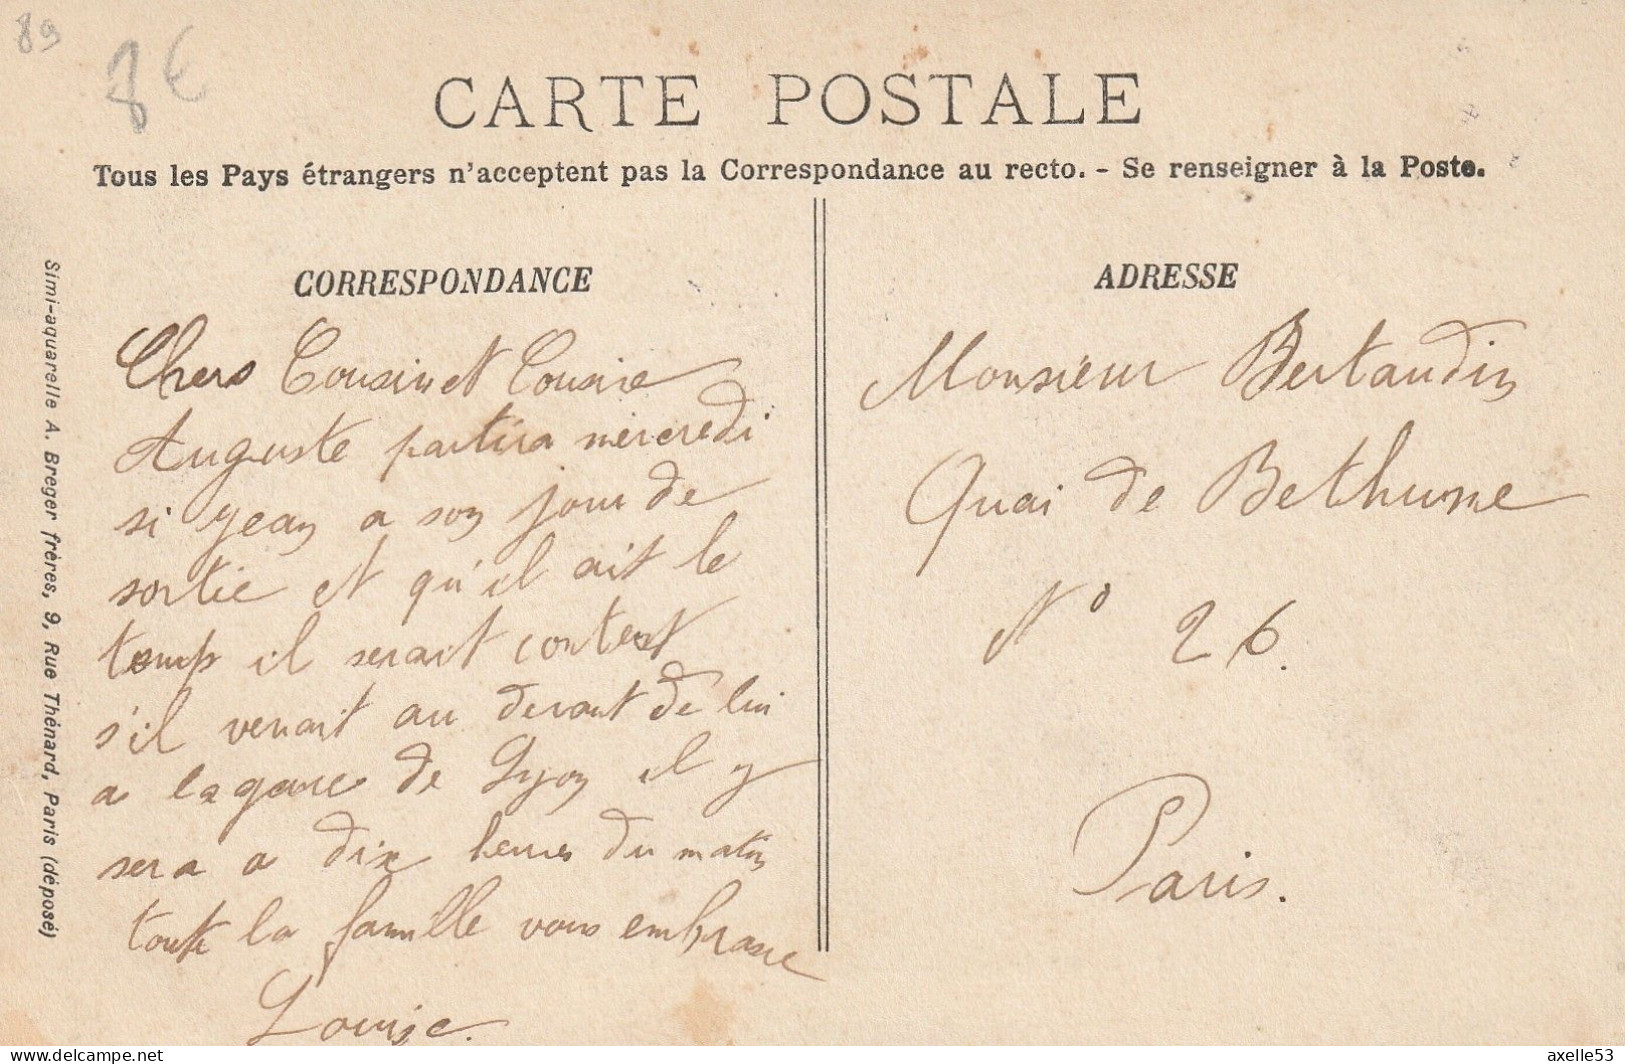 89
8€
CARTE POSTALE
Tous les Pays étrangers n'acceptent pas la Correspondance au recto. - Se renseigner à la Poste.
CORRESPONDANCE
Chers Cousin et Cousine
Auguste partira mercredi
si jean a son jour de
sortie et qu'il ait le
temp il serait content
s'il venait au devant de lui
a la gare de Lyon il y
sera a dix heures du matin
toute la famille vous embrasse
Louise.
ADRESSE
Monsieur Bertaudin
Quai de Bethune
N° 26.
Paris.
Simi-aquarelle A. Breger frères, 9, Rue Thénard, Paris (déposé)
https://www.delcampe.net
axelle53